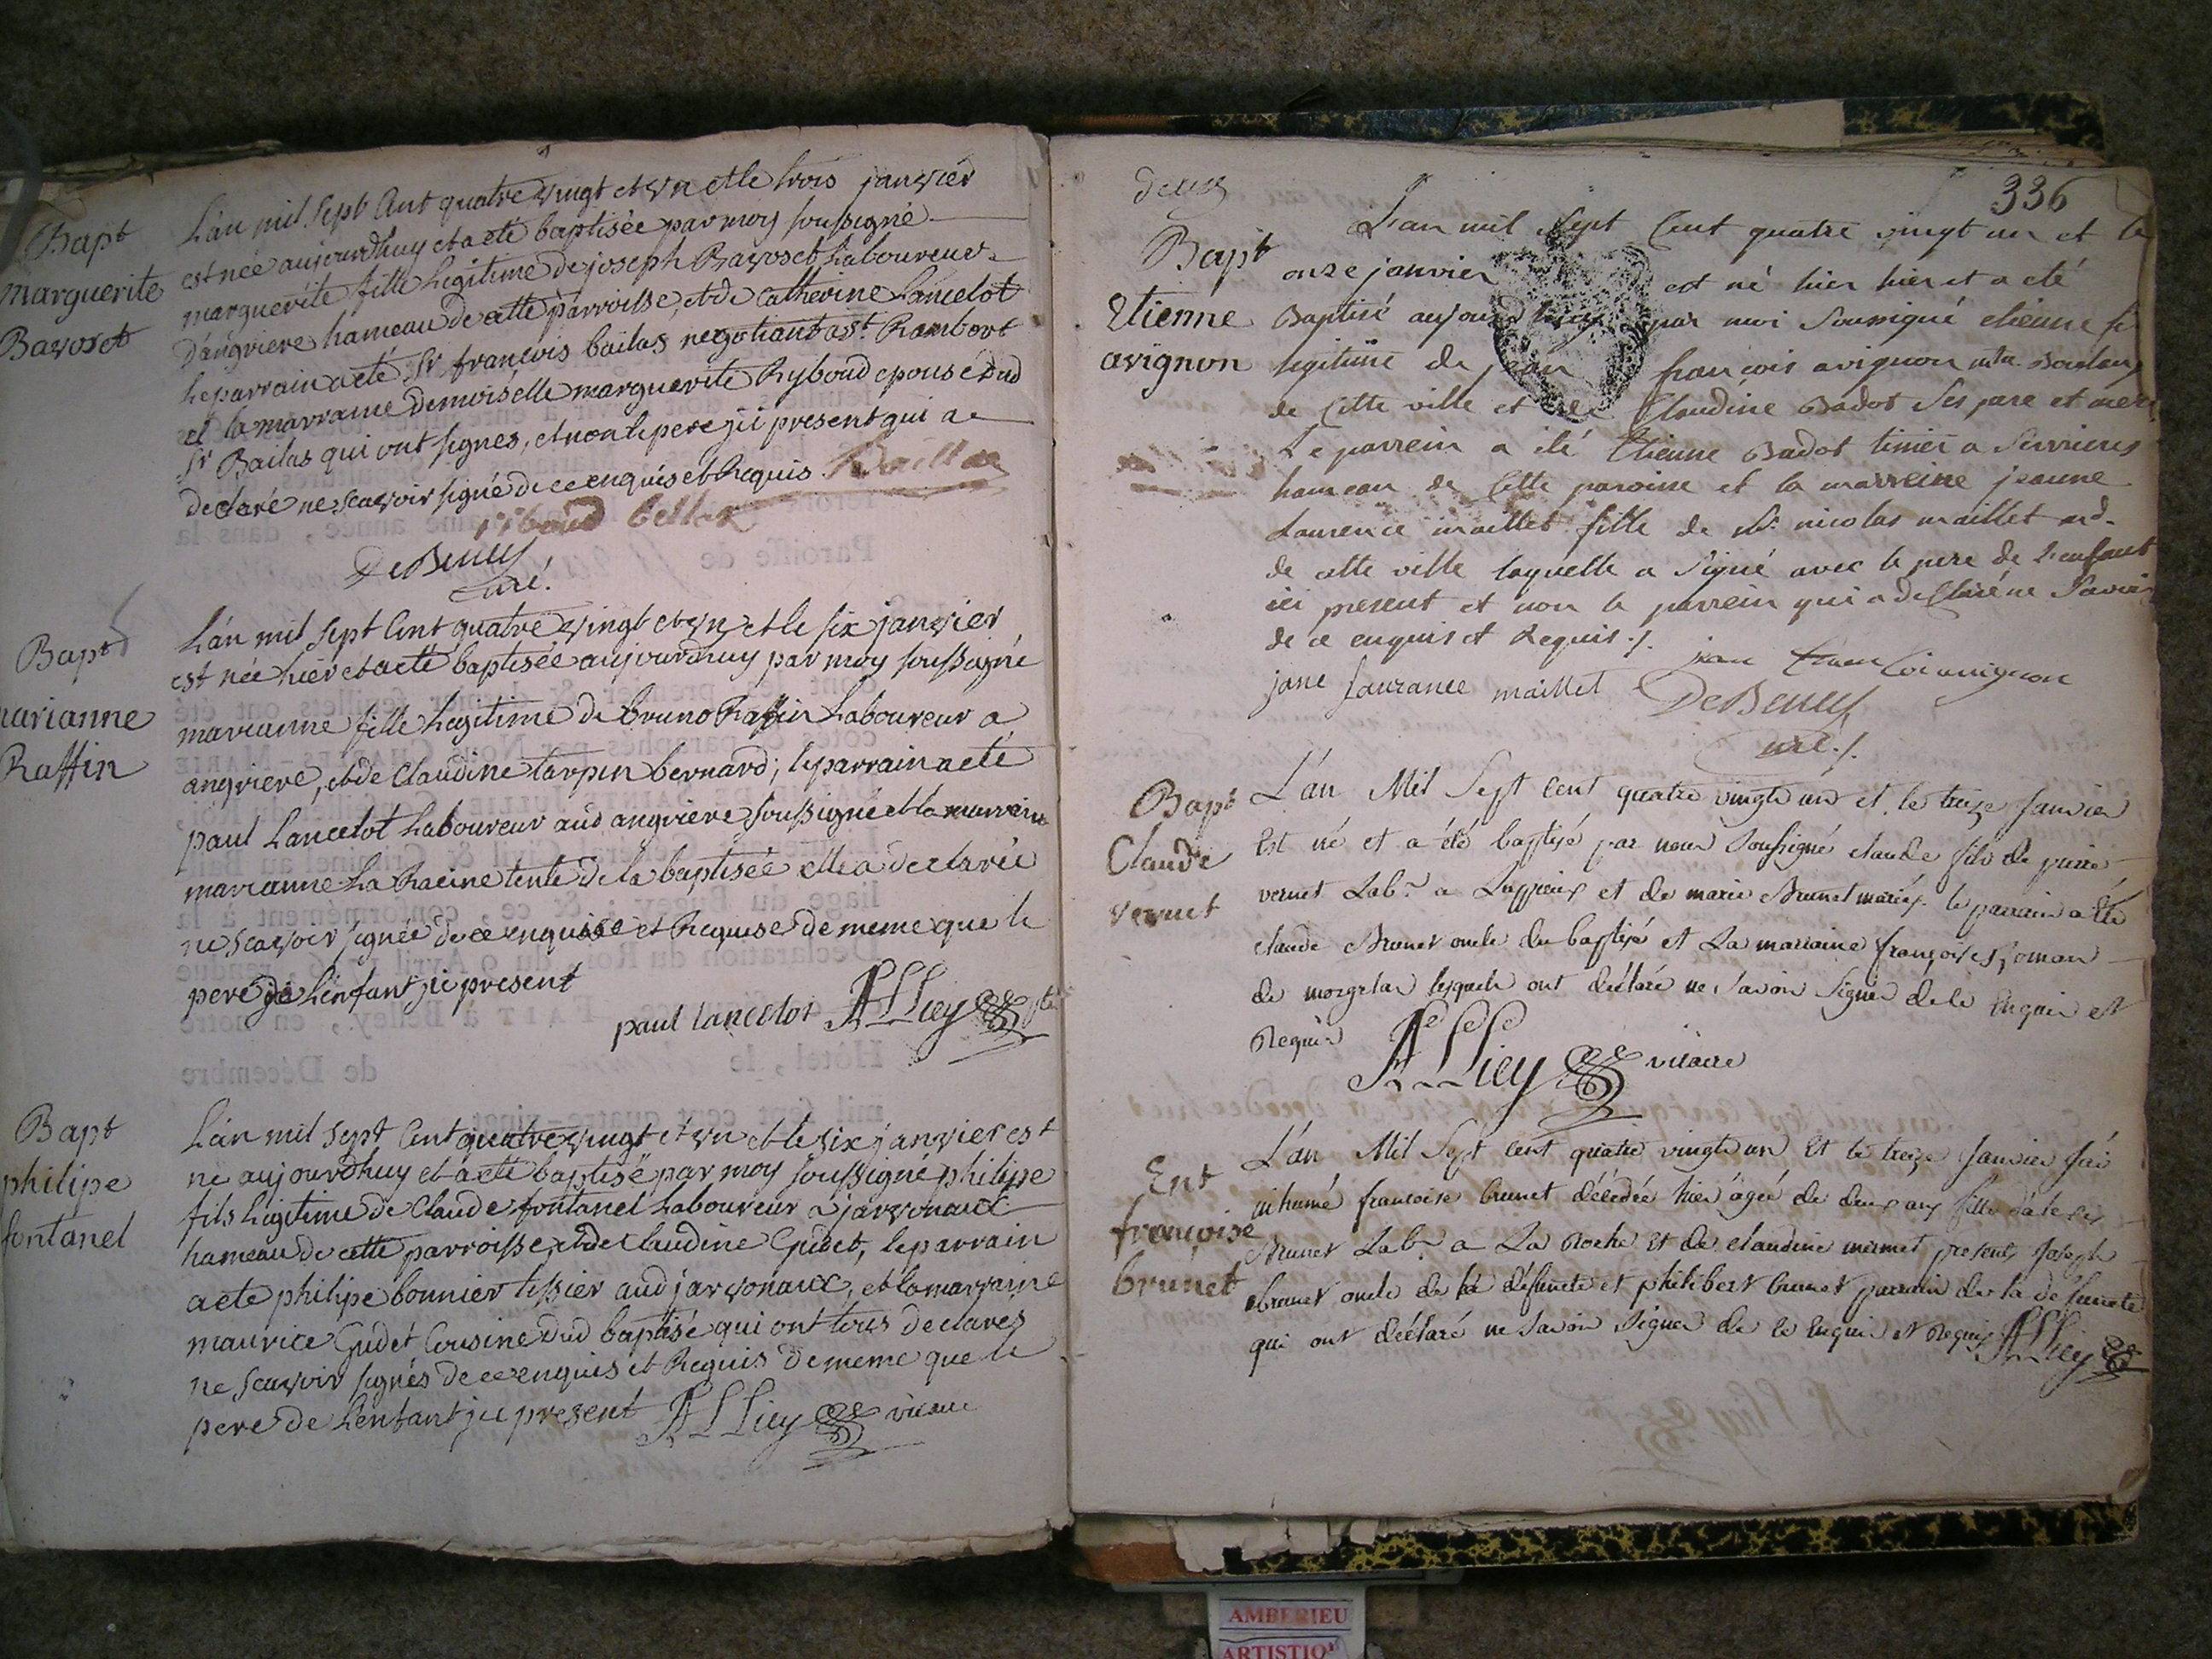 Bapt
Marguerite
Bavoset
L'an mil sept Cent quatre vingt et vn et le trois janvier
est née aujourdhuy et a eté baptisée par moy soussigné
marguérite fille Legitime de joseph Bavoset Laboureur
D'angriere hameau de cette parroisse, et de Catherine Lancelot
Le parrain a eté Sr françois bailas negotiant a st Rambert
et la marraine demoiselle marguerite Ryboud epouse dud
Sr Bailas qui ont signes, et non le pere ji present qui a
declaré ne scavoir signé de ce enquis et Requis
riboud
DeBeney
Curé.
Bapt
marianne
Raffin
L'an mil sept Cent quatre vingt et vn et le six janvier
est née hièr et a eté baptisée aujourdhuy par moy soussigné
marianne fille Legitime de bruno Raffin Laboureur a
angriere, et de Claudine tarpin bernard; le parrain a eté
paul Lancelot Laboureur aud angriere soussigné et la marraine
marianne La Racine tente de la baptisée elle a declarée
ne scavoir signée de ce enquise et Requise de meme que le
pere de L'enfant ji present
paul lancelot
Bapt
philipe
fontanel
L'an mil sept Cent quatre vingt et vn et le six janvier est
né aujourdhuy et a eté baptisé par moy soussigné philipe
fils Legitime de Claude fontanel Laboureur a jarvonaux
hameau de cette parroisse, et de Claudine Gudet, le parrain
a eté philipe bonnier tissier aud jarvonaux, et la marraine
maurice Gudet Cousine dud baptisé qui ont tous declarés
ne scavoir signés de ce enquis et Requis de meme que le
pere de L'enfant ji present
vicaire
deux
336
Bapt
Etienne
avignon
L'an mil Sept Cent quatre vingt un et le
onze janvier est né hier hier et a eté
Baptisé aujourdhuy par moi Soussigné etienne fi
legitime de jean françois avignon mtre Boulang
de Cette ville et de Claudine Badot Ses pere et mere
Le parrein a été Etienne Badot a Serrieres
hameau de Cette paroisse et la marreine jeanne
Laurence maillet fille de Sr nicolas maillet md
de cette ville laquelle a Signé avec le pere de l'enfant
ici present et non le parrein qui a declaré ne Savoir
de ce enquis et Requis ./.
jane laurance maillet
DeBeney
curé ./.
Bapt
Claude
vernet
L'an Mil Sept cent quatre vingt un et le treize Janvier
Est né et a été baptisé par nous Soussigné claude fils de pierre
vernet Labr a et de marie Brunet mariés. le parrain a été
claude Brunet oncle du baptisé et La marraine françoise
de morgelas lesquels ont déclaré ne Savoir Signer de ce Enquis et
Requis
vicaire
Ent
françoise
brunet
L'an Mil Sept cent quatre vingt un Et le treize Janvier J'ai
inhumé francoise brunet décédée hier agée de deux ans fille d'alexis
Brunet Labr a La Roche Et de claudine mermet presents Joseph
brunet oncle de la défuncte et philibert brunet parrain de la défuncte
qui ont déclaré ne Savoir Signer de ce Enquis et Requis
AMBERIEU